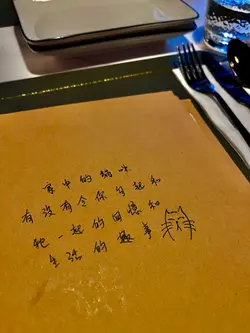 家中的貓咪
有沒有令你勾起和
牠一起的回憶和
生活的趣事